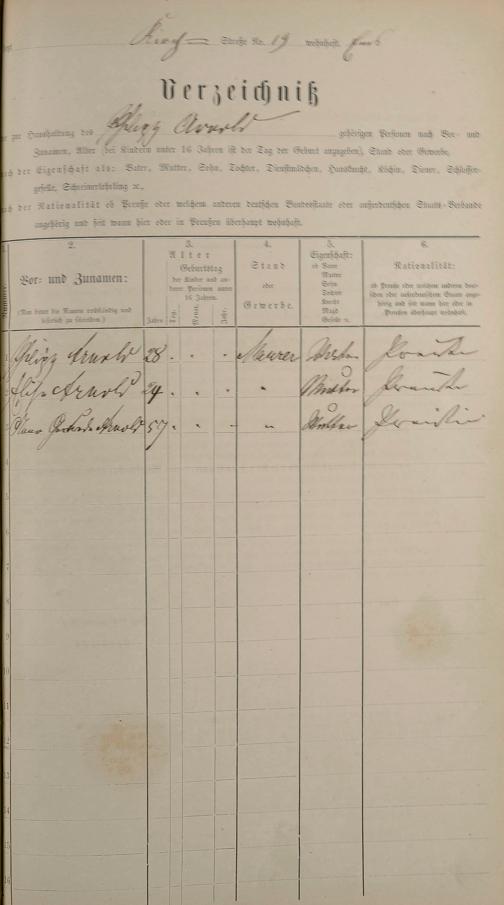 Kirch= Straße Nr. 19 wohnhaft. Ems
Verzeichniß
der zur Haushaltung des Philipp Arnold gehörigen Personen nach Vor- und
Zunamen, Alter (bei Kindern unter 16 Jahren ist der Tag der Geburt anzugeben), Stand oder Gewerbe,
nach der Eigenschaft als: Vater, Mutter, Sohn, Tochter, Dienstmädchen, Hausknecht, Köchin, Diener, Schlosser-
geselle, Schreinerlehrling ꝛc.,
nach der Nationalität ob Preuße oder welchem anderen deutschen Bundesstaate oder außerdeutschen Staats-Verbande
angehörig und seit wann hier oder in Preußen überhaupt wohnhaft.
2. 3. 4. 5. 6.
Vor- und Zunamen:
(Man bittet die Namen vollständig und leserlich zu schreiben.)
Alter
Geburtstag
der Kinder und anderer Personen unter 16 Jahren.
Jahre Tag. Monat Jahr.
Stand
oder
Gewerbe.
Eigenschaft:
ob Vater
Mutter
Sohn
Tochter
Knecht
Magd
Geselle u.
Nationalität:
ob Preuße oder welchem anderen deutschen oder außerdeutschen Staate angehörig und seit wann hier oder in Preußen überhaupt wohnhaft.
Philipp Arnold 28 Maurer Vater Preuße
Elise Arnold 24 " Mutter Preuße
Arnold 57 " Mutter
4
5
6
7
8
9
10
11
12
13
14
15
16